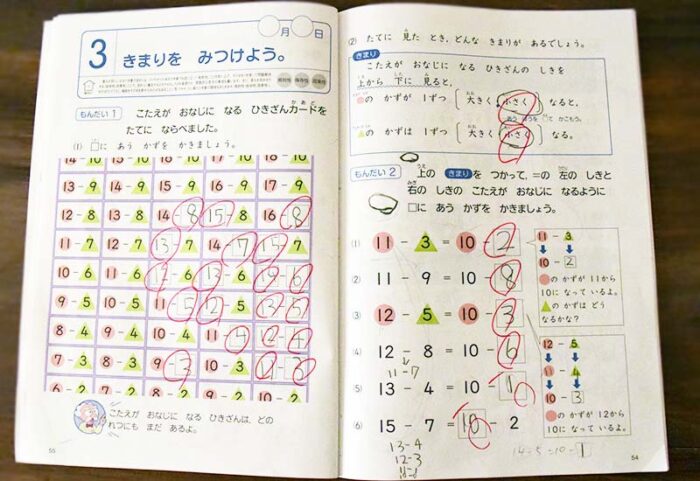 3
きまりを みつけよう。
月 日
もんだい 1 こたえが おなじに なる ひきざんカードを
たてに ならべました。
(1) □に あう かずを かきましょう。
13-9 14-9 15-9 16-9 17-9
12-8 13-8 14-8 15-8 16-8
11-7 12-7 13-7 14-7 15-7
10-6 11-6 12-6 13-6
9-5 10-5 11-5 12-5 13-5
8-4 9-4 10-4 11-4 12-4
7-3 8-3 9-3 10-3 11-3
こたえが おなじに なる ひきざんは、どの
れつにも まだ あるよ。
55
(2) たてに 見た とき、どんな きまりが あるでしょう。
きまり
こたえが おなじに なる ひきざんの しきを
上から 下に 見ると、
の かずが 1ずつ 大きく 小さく なると、
あう ほうを ○で かこもう。
の かずは 1ずつ 大きく 小さく なる。
もんだい 2 上の きまり を つかって、=の 左の しきと
右の しきの こたえが おなじに なるように
□に あう かずを かきましょう。
(1) 11-3=10-2
(2) 11-9=10-8
(3) 12-5=10-3
(4) 12-8=10-6
11-7
(5) 13-4=10-1
(6) 15-7=10-2
13-4
12-3
11-3
10-2
の かずが 11から
10に なって いるよ。
の かずは どう
なるかな?
12-5
11-4
10-3
の かずが 12から
10に なって いるよ。
14-5=10-1
54